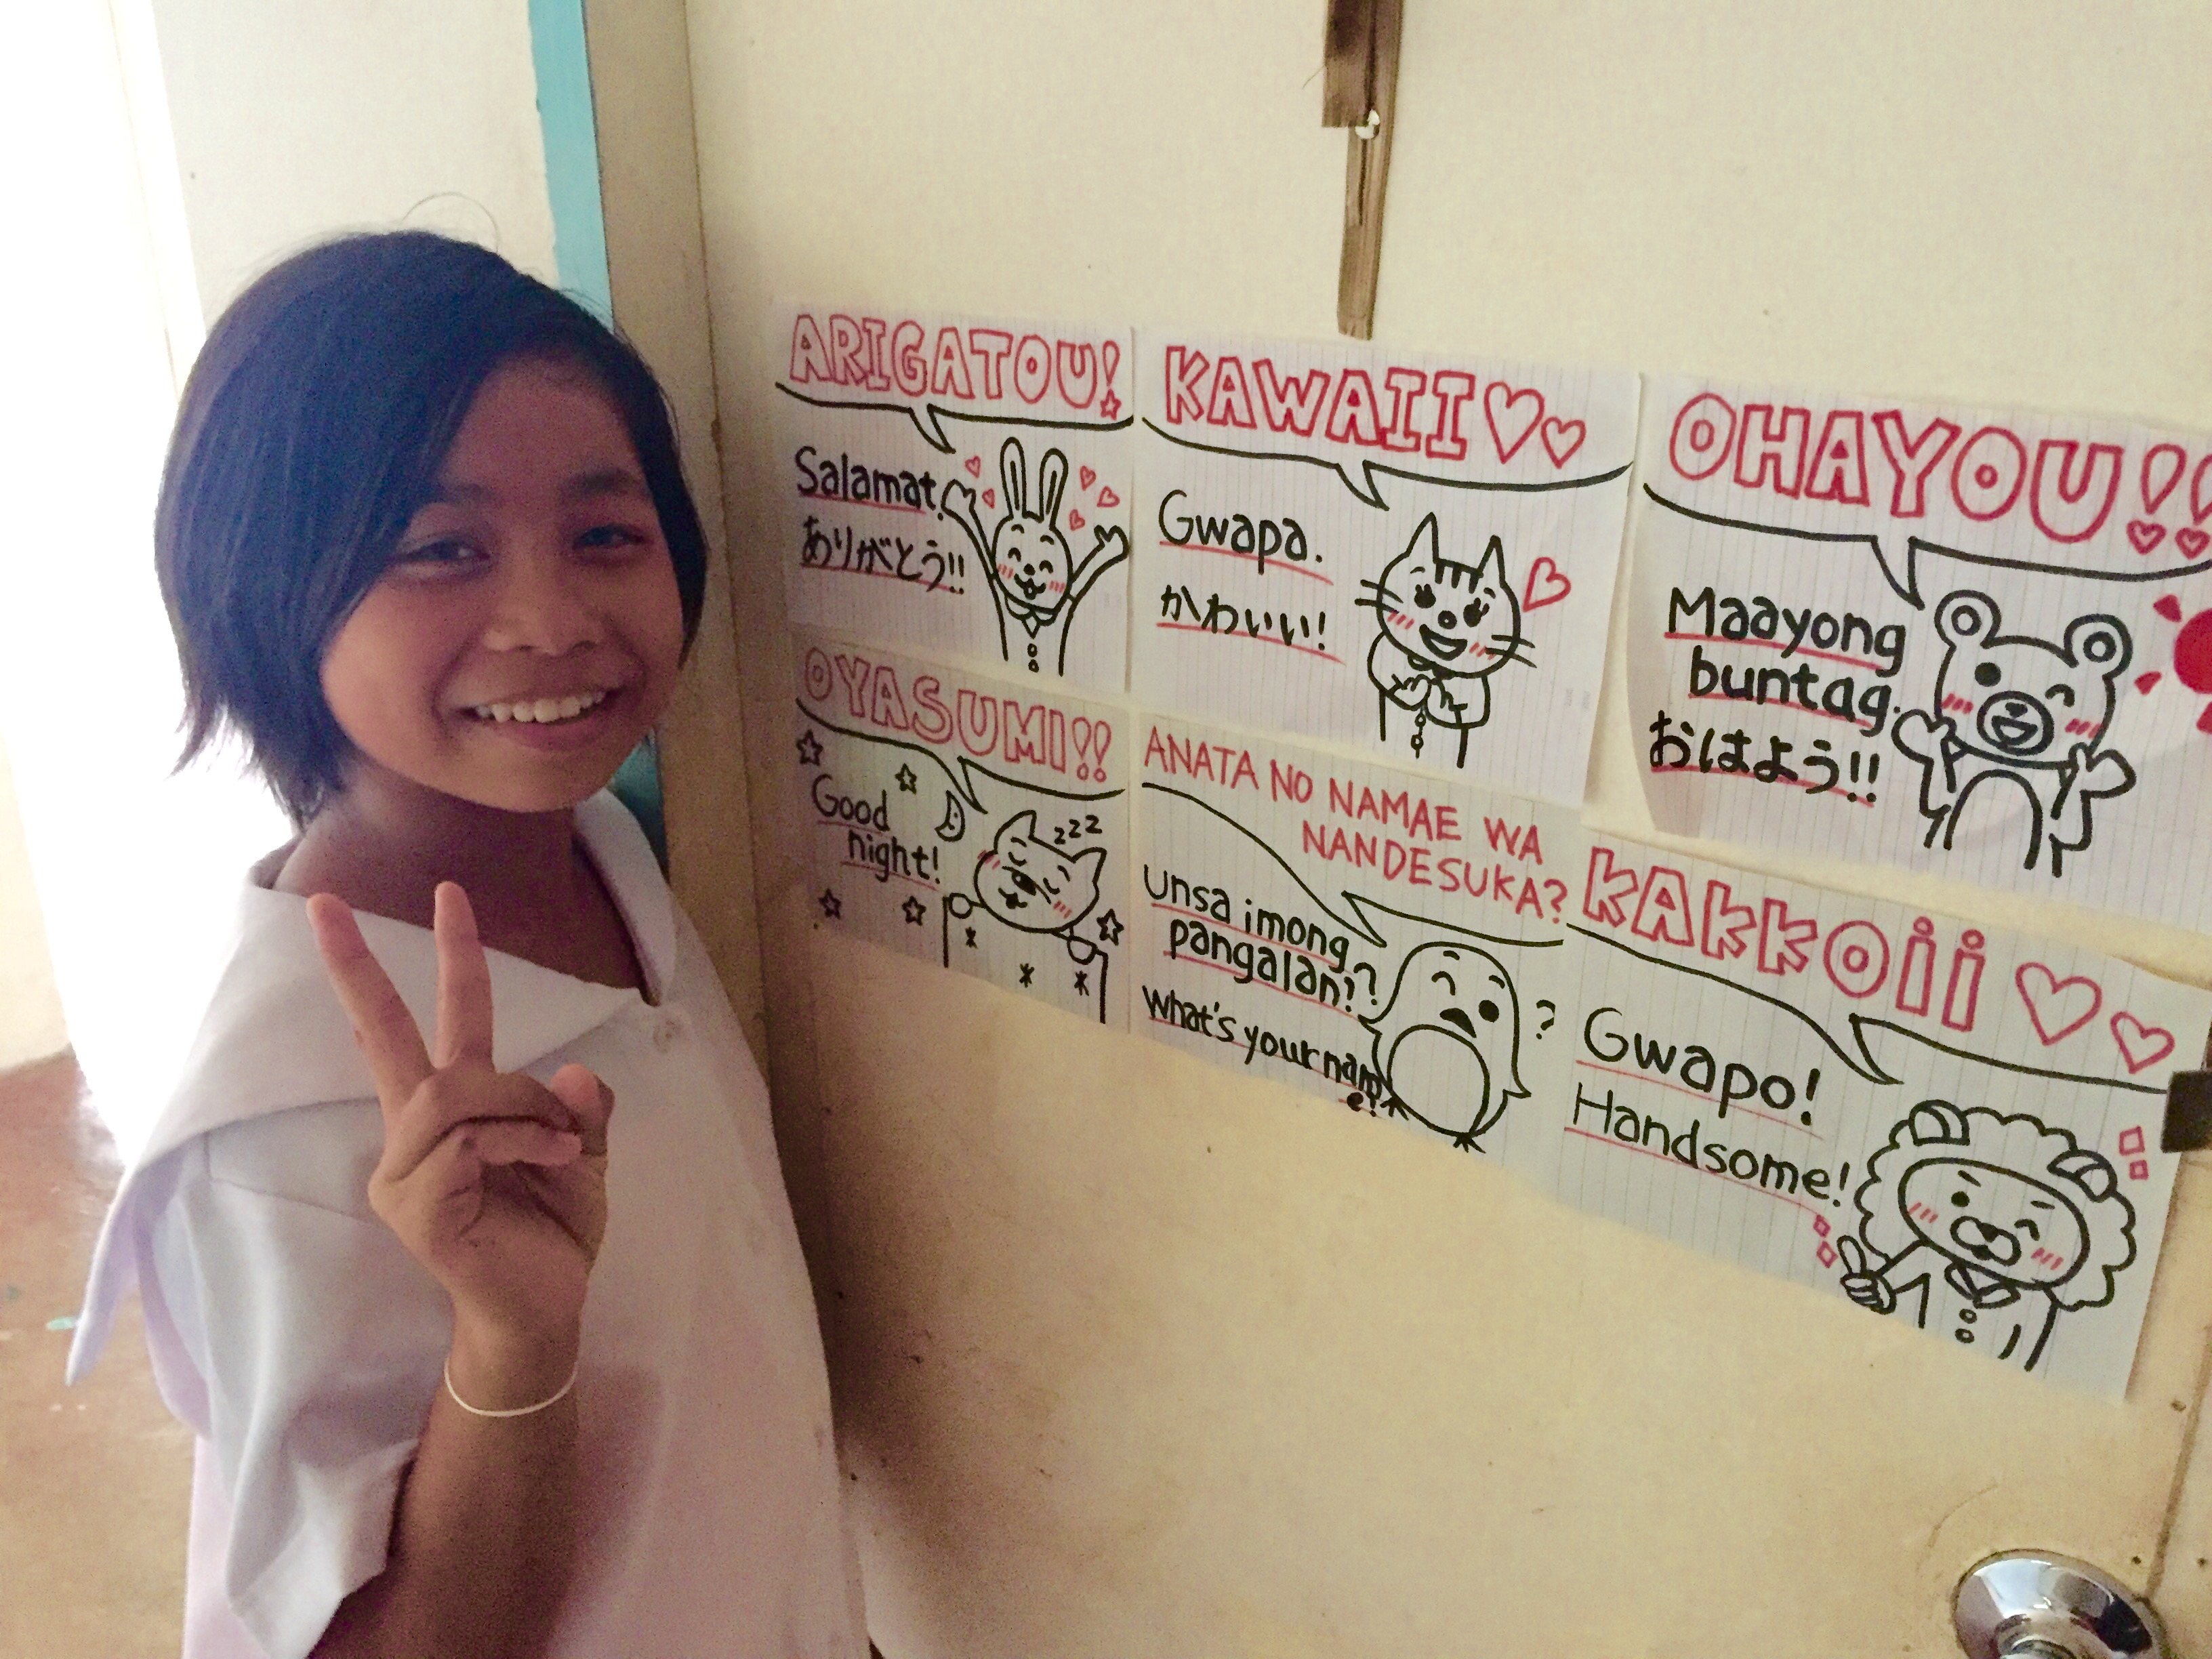 ARIGATOU!
Salamat.
ありがとう!!
KAWAII
Gwapa.
かわいい!
OHAYOU!!
Maayong
buntag.
おはよう!!
OYASUMI!!
Good
night!
zzz
ANATA NO NAMAE WA
NANDESUKA?
Unsa imong
pangalan??
What's your nam
e?
?
KAKKOii
Gwapo!
Handsome!